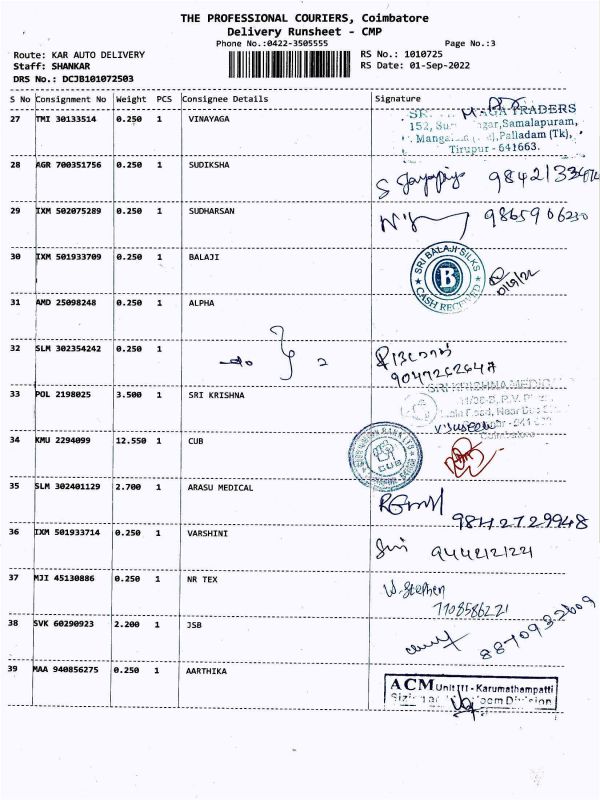 THE PROFESSIONAL COURIERS, Coimbatore
Delivery Runsheet - CMP
Phone No.:0422-3505555 Page No.:3
Route: KAR AUTO DELIVERY RS No.: 1010725
Staff: SHANKAR RS Date: 01-Sep-2022
DRS No.: DCJB101072503
S No Consignment No Weight PCS Consignee Details Signature
27 TMI 30133514 0.250 1 VINAYAGA
TRADERS
152, Samalapuram,
Palladam (Tk),
Tirupur - 641663.
28 AGR 700351756 0.250 1 SUDIKSHA
29 IXM 502075289 0.250 1 SUDHARSAN 9865906230
30 IXM 501933709 0.250 1 BALAJI
SRI BALAJI SILKS
B
CASH RECEIVED
31 AMD 25098248 0.250 1 ALPHA
32 SLM 302354242 0.250 1
33 POL 2198025 3.500 1 SRI KRISHNA
SRI KRISHNA
34 KMU 2294099 12.550 1 CUB
CUB
35 SLM 302401129 2.700 1 ARASU MEDICAL
9842729948
36 IXM 501933714 0.250 1 VARSHINI
37 MJI 45130886 0.250 1 NR TEX W. Stephen
7708586221
38 SVK 60290923 2.200 1 JSB 8870932609
39 MAA 940856275 0.250 1 AARTHIKA
ACM Unit III - Karumathampatti
Division